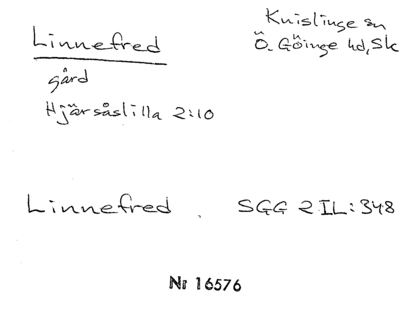 Linnefred
Knislinge sn
Ö. Göinge hd, Sk
gård
Hjärsåslilla 2:10
Linnefred. SGG 2 IL: 348
Nr 16576